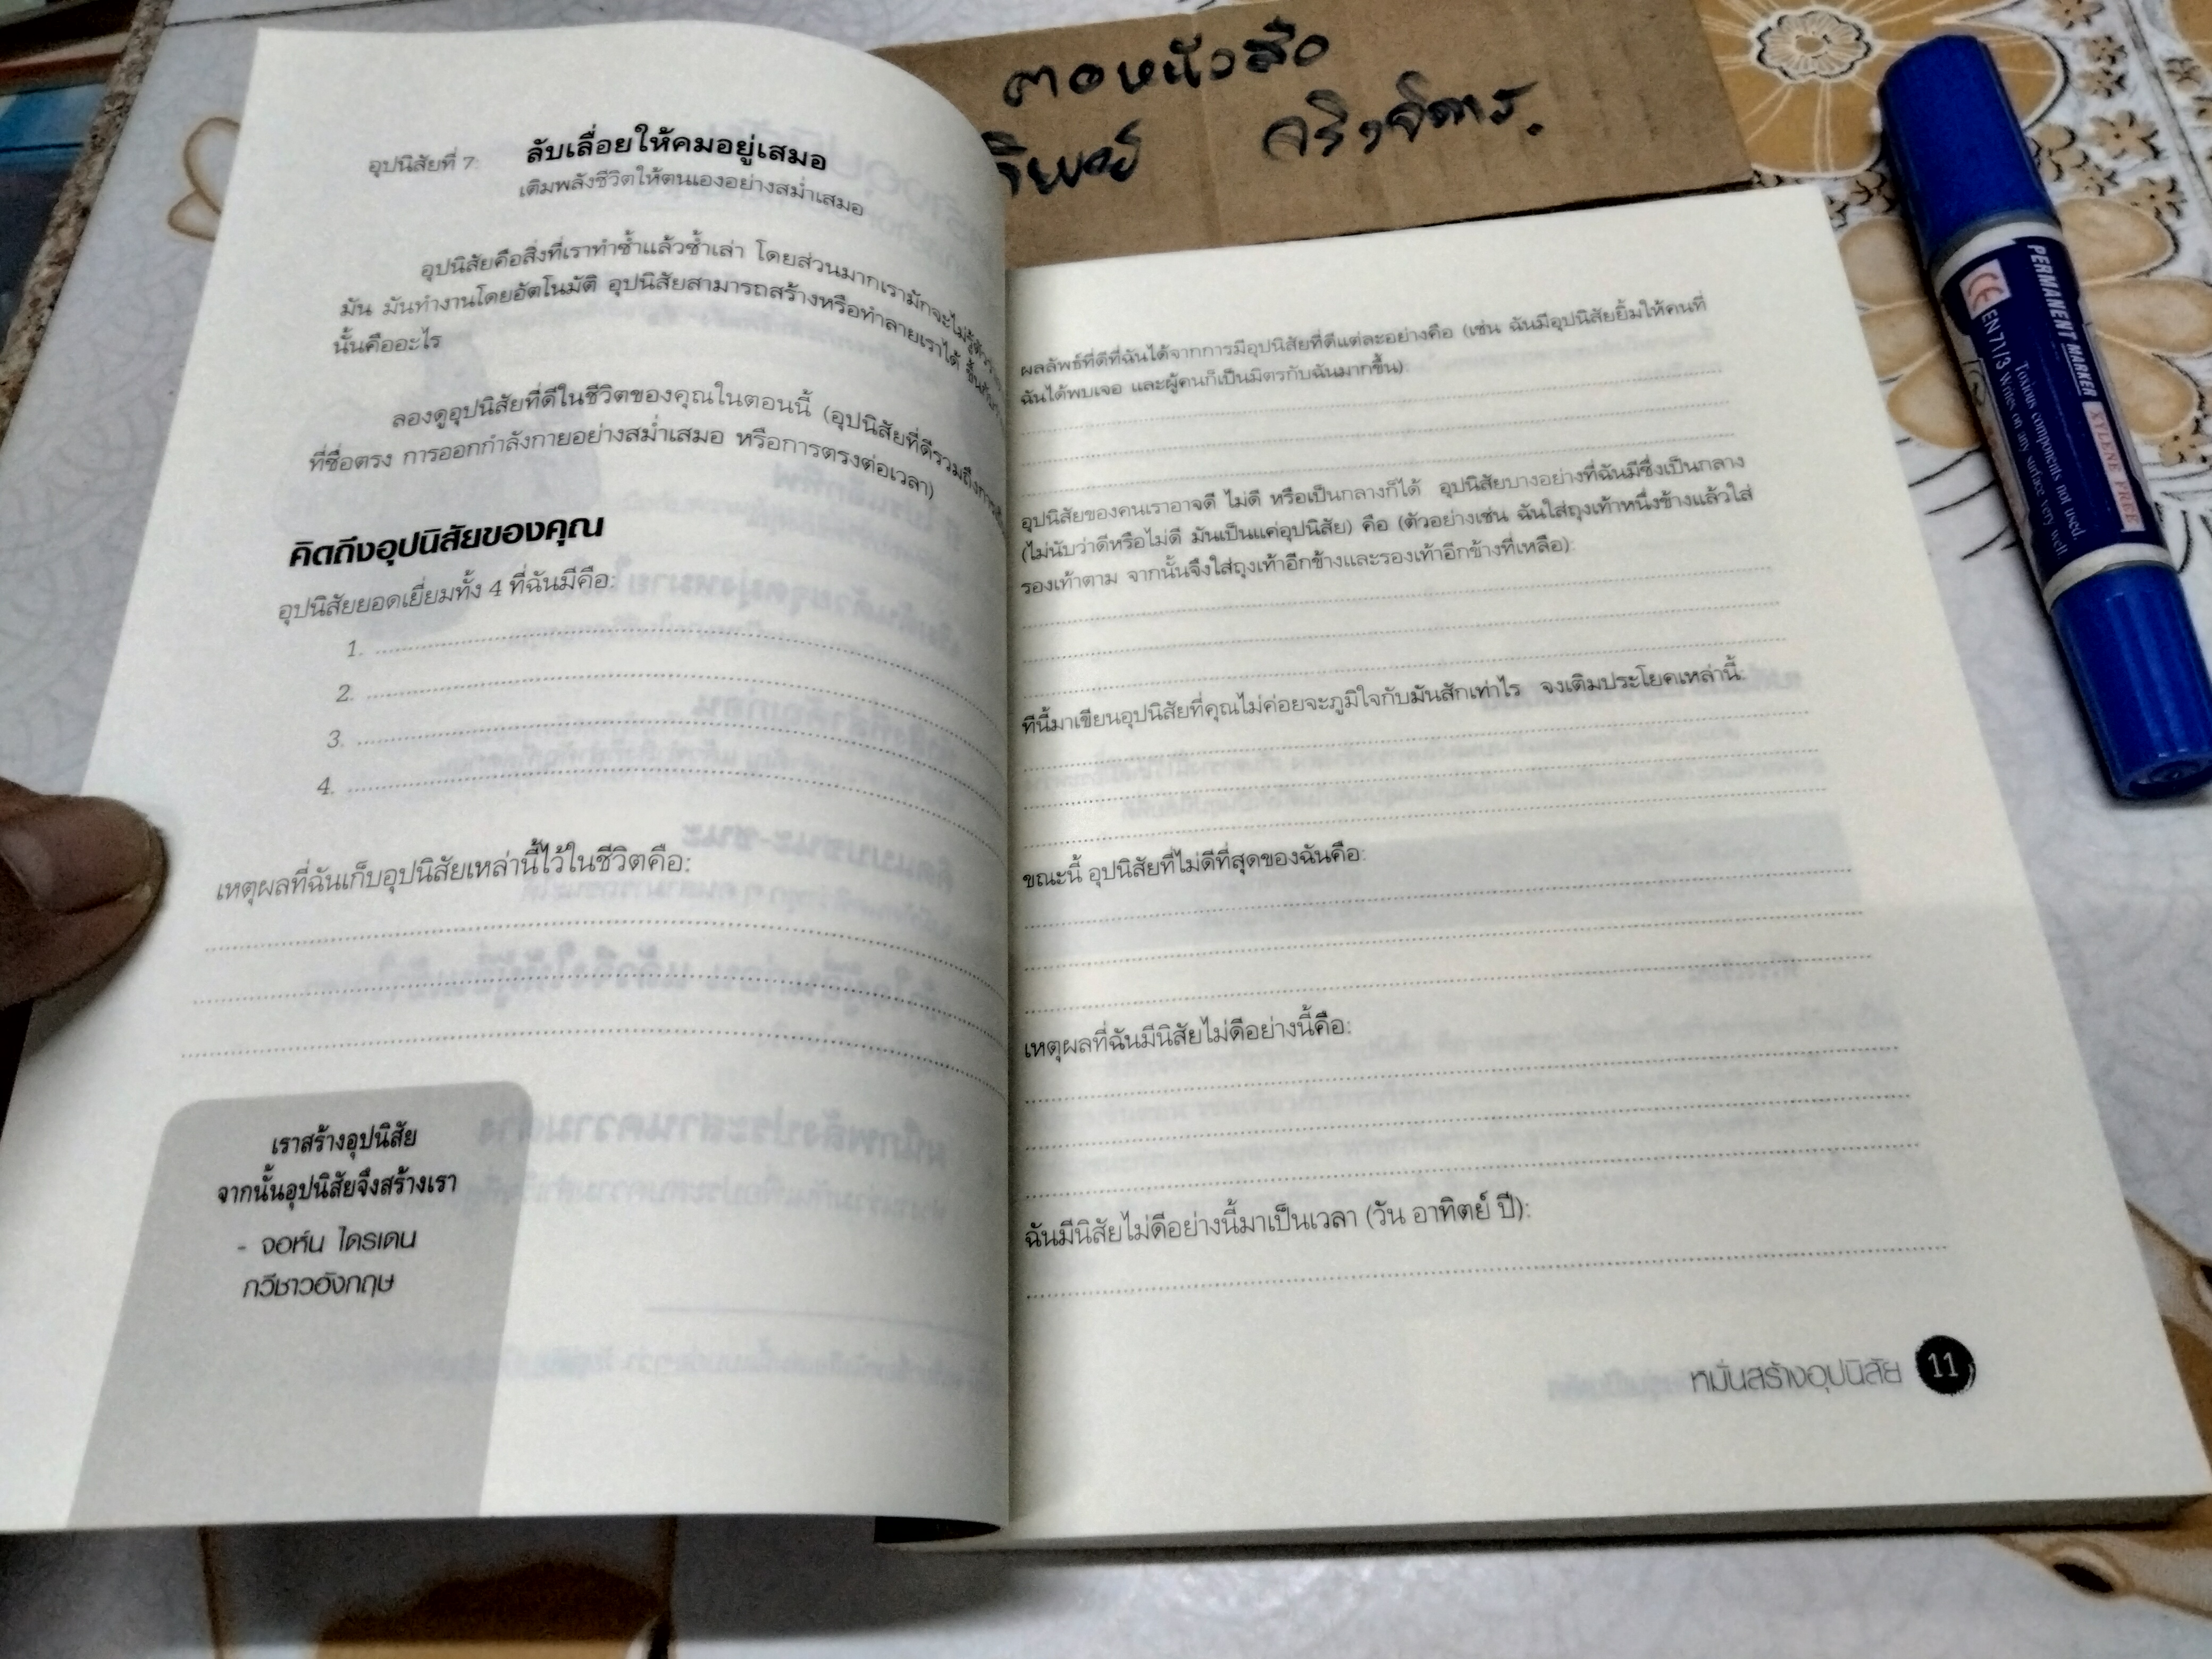 ตอหนังสือ
จริงจัดการ.
อุปนิสัยที่ 7: ลับเลื่อยให้คมอยู่เสมอ
เติมพลังชีวิตให้ตนเองอย่างสม่ำเสมอ
อุปนิสัยคือสิ่งที่เราทำซ้ำแล้วซ้ำเล่า โดยส่วนมากเรามักจะไม่รู้ตัว
มัน มันทำงานโดยอัตโนมัติ อุปนิสัยสามารถสร้างหรือทำลายเราได้
นั้นคืออะไร
ลองดูอุปนิสัยที่ดีในชีวิตของคุณในตอนนี้ (อุปนิสัยที่ดีรวมถึง
ที่ซื่อตรง การออกกำลังกายอย่างสม่ำเสมอ หรือการตรงต่อเวลา)
คิดถึงอุปนิสัยของคุณ
อุปนิสัยยอดเยี่ยมทั้ง 4 ที่ฉันมีคือ:
1.
2.
3.
4.
เหตุผลที่ฉันเก็บอุปนิสัยเหล่านี้ไว้ในชีวิตคือ:
เราสร้างอุปนิสัย
จากนั้นอุปนิสัยจึงสร้างเรา
- จอห์น ไดรเดน
กวีชาวอังกฤษ
ผลลัพธ์ที่ดีที่ฉันได้จากการมีอุปนิสัยที่ดีแต่ละอย่างคือ (เช่น ฉันมีอุปนิสัยยิ้มให้คนที่
ฉันได้พบเจอ และผู้คนก็เป็นมิตรกับฉันมากขึ้น):
อุปนิสัยของคนเราอาจดี ไม่ดี หรือเป็นกลางก็ได้ อุปนิสัยบางอย่างที่ฉันมีซึ่งเป็นกลาง
(ไม่นับว่าดีหรือไม่ดี มันเป็นแค่อุปนิสัย) คือ (ตัวอย่างเช่น ฉันใส่ถุงเท้าหนึ่งข้างแล้วใส่
รองเท้าตาม จากนั้นจึงใส่ถุงเท้าอีกข้างและรองเท้าอีกข้างที่เหลือ):
ทีนี้มาเขียนอุปนิสัยที่คุณไม่ค่อยจะภูมิใจกับมันสักเท่าไร จงเติมประโยคเหล่านี้:
ขณะนี้ อุปนิสัยที่ไม่ดีที่สุดของฉันคือ:
เหตุผลที่ฉันมีนิสัยไม่ดีอย่างนี้คือ:
ฉันมีนิสัยไม่ดีอย่างนี้มาเป็นเวลา (วัน อาทิตย์ ปี):
หมั่นสร้างอุปนิสัย 11
PERMANENT MARKER XYLENE FREE
CE EN 71/3 Toxious components not used.
Writes on any surface very well